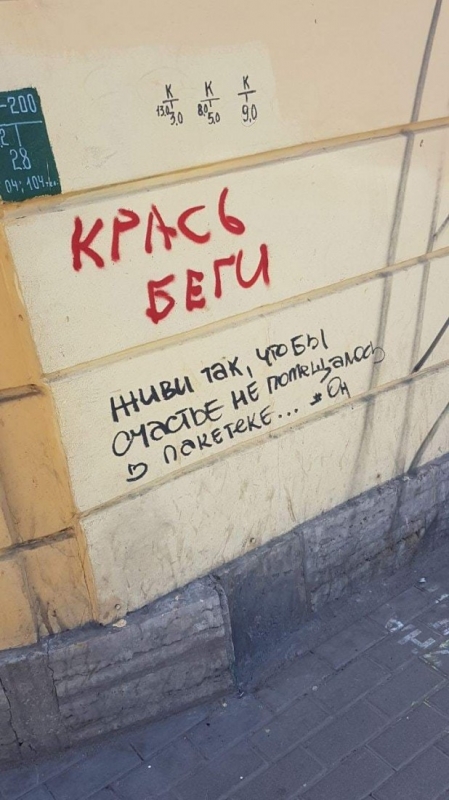 -200
28
04; 104
К К К
13,0 3,0 8,0 5,0 9,0
КРАСЬ
БЕГИ
ЖИВИ ТАК, ЧТОБЫ
СЧАСТЬЕ НЕ ПОМЕЩАЛОСЬ
В ПАКЕТЕКЕ... *Он